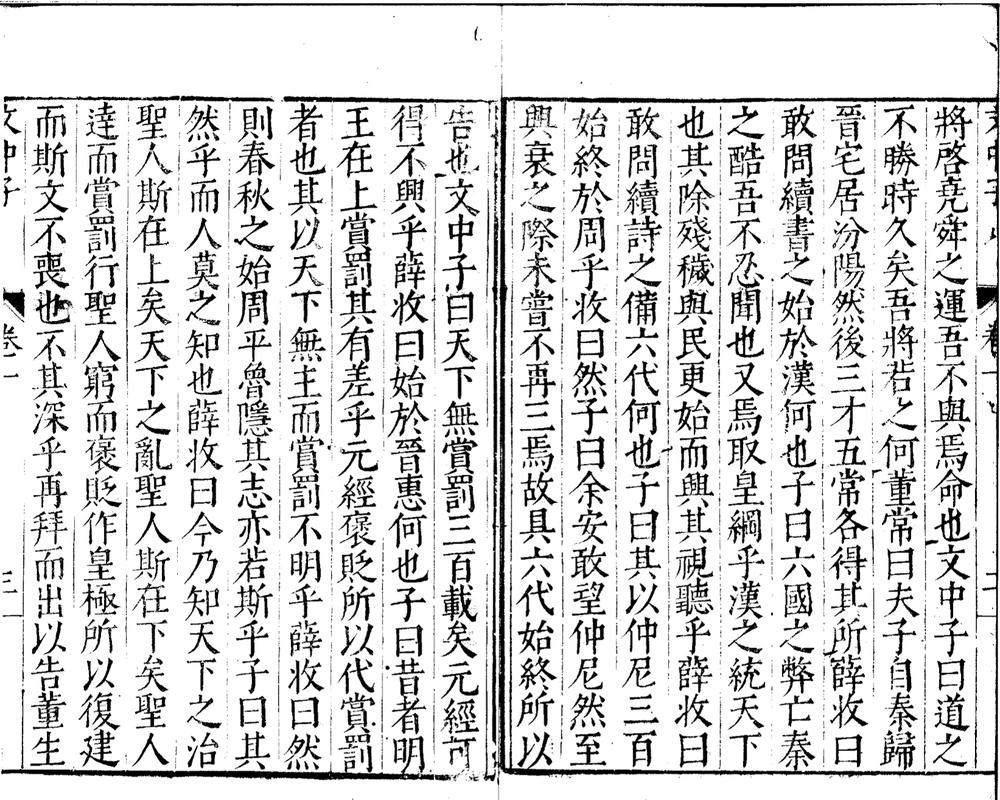 將啓堯舜之運吾不與焉命也文中子曰道之
不勝時久矣吾將若之何董常曰夫子自秦歸
晉宅居汾陽然後三才五常各得其所薛收曰
敢問續書之始於漢何也子曰六國之弊亡秦
之酷吾不忍聞也又焉取皇綱乎漢之統天下
也其除殘穢與民更始而興其視聽乎薛收曰
敢問續詩之備六代何也子曰其以仲尼三百
始終於周乎收曰然子曰余安敢望仲尼然至
興衰之際未嘗不再三焉故具六代始終所以
告也文中子曰天下無賞罰三百載矣元經可
得不興乎薛收曰始於晉惠何也子曰昔者明
王在上賞罰其有差乎元經褒貶所以代賞罰
者也其以天下無主而賞罰不明乎薛收曰然
則春秋之始周平魯隱其志亦若斯乎子曰其
然乎而人莫之知也薛收曰今乃知天下之治
聖人斯在上矣天下之亂聖人斯在下矣聖人
達而賞罰行聖人窮而褒貶作皇極所以復建
而斯文不喪也不其深乎再拜而出以告董生
文中子 卷一 三